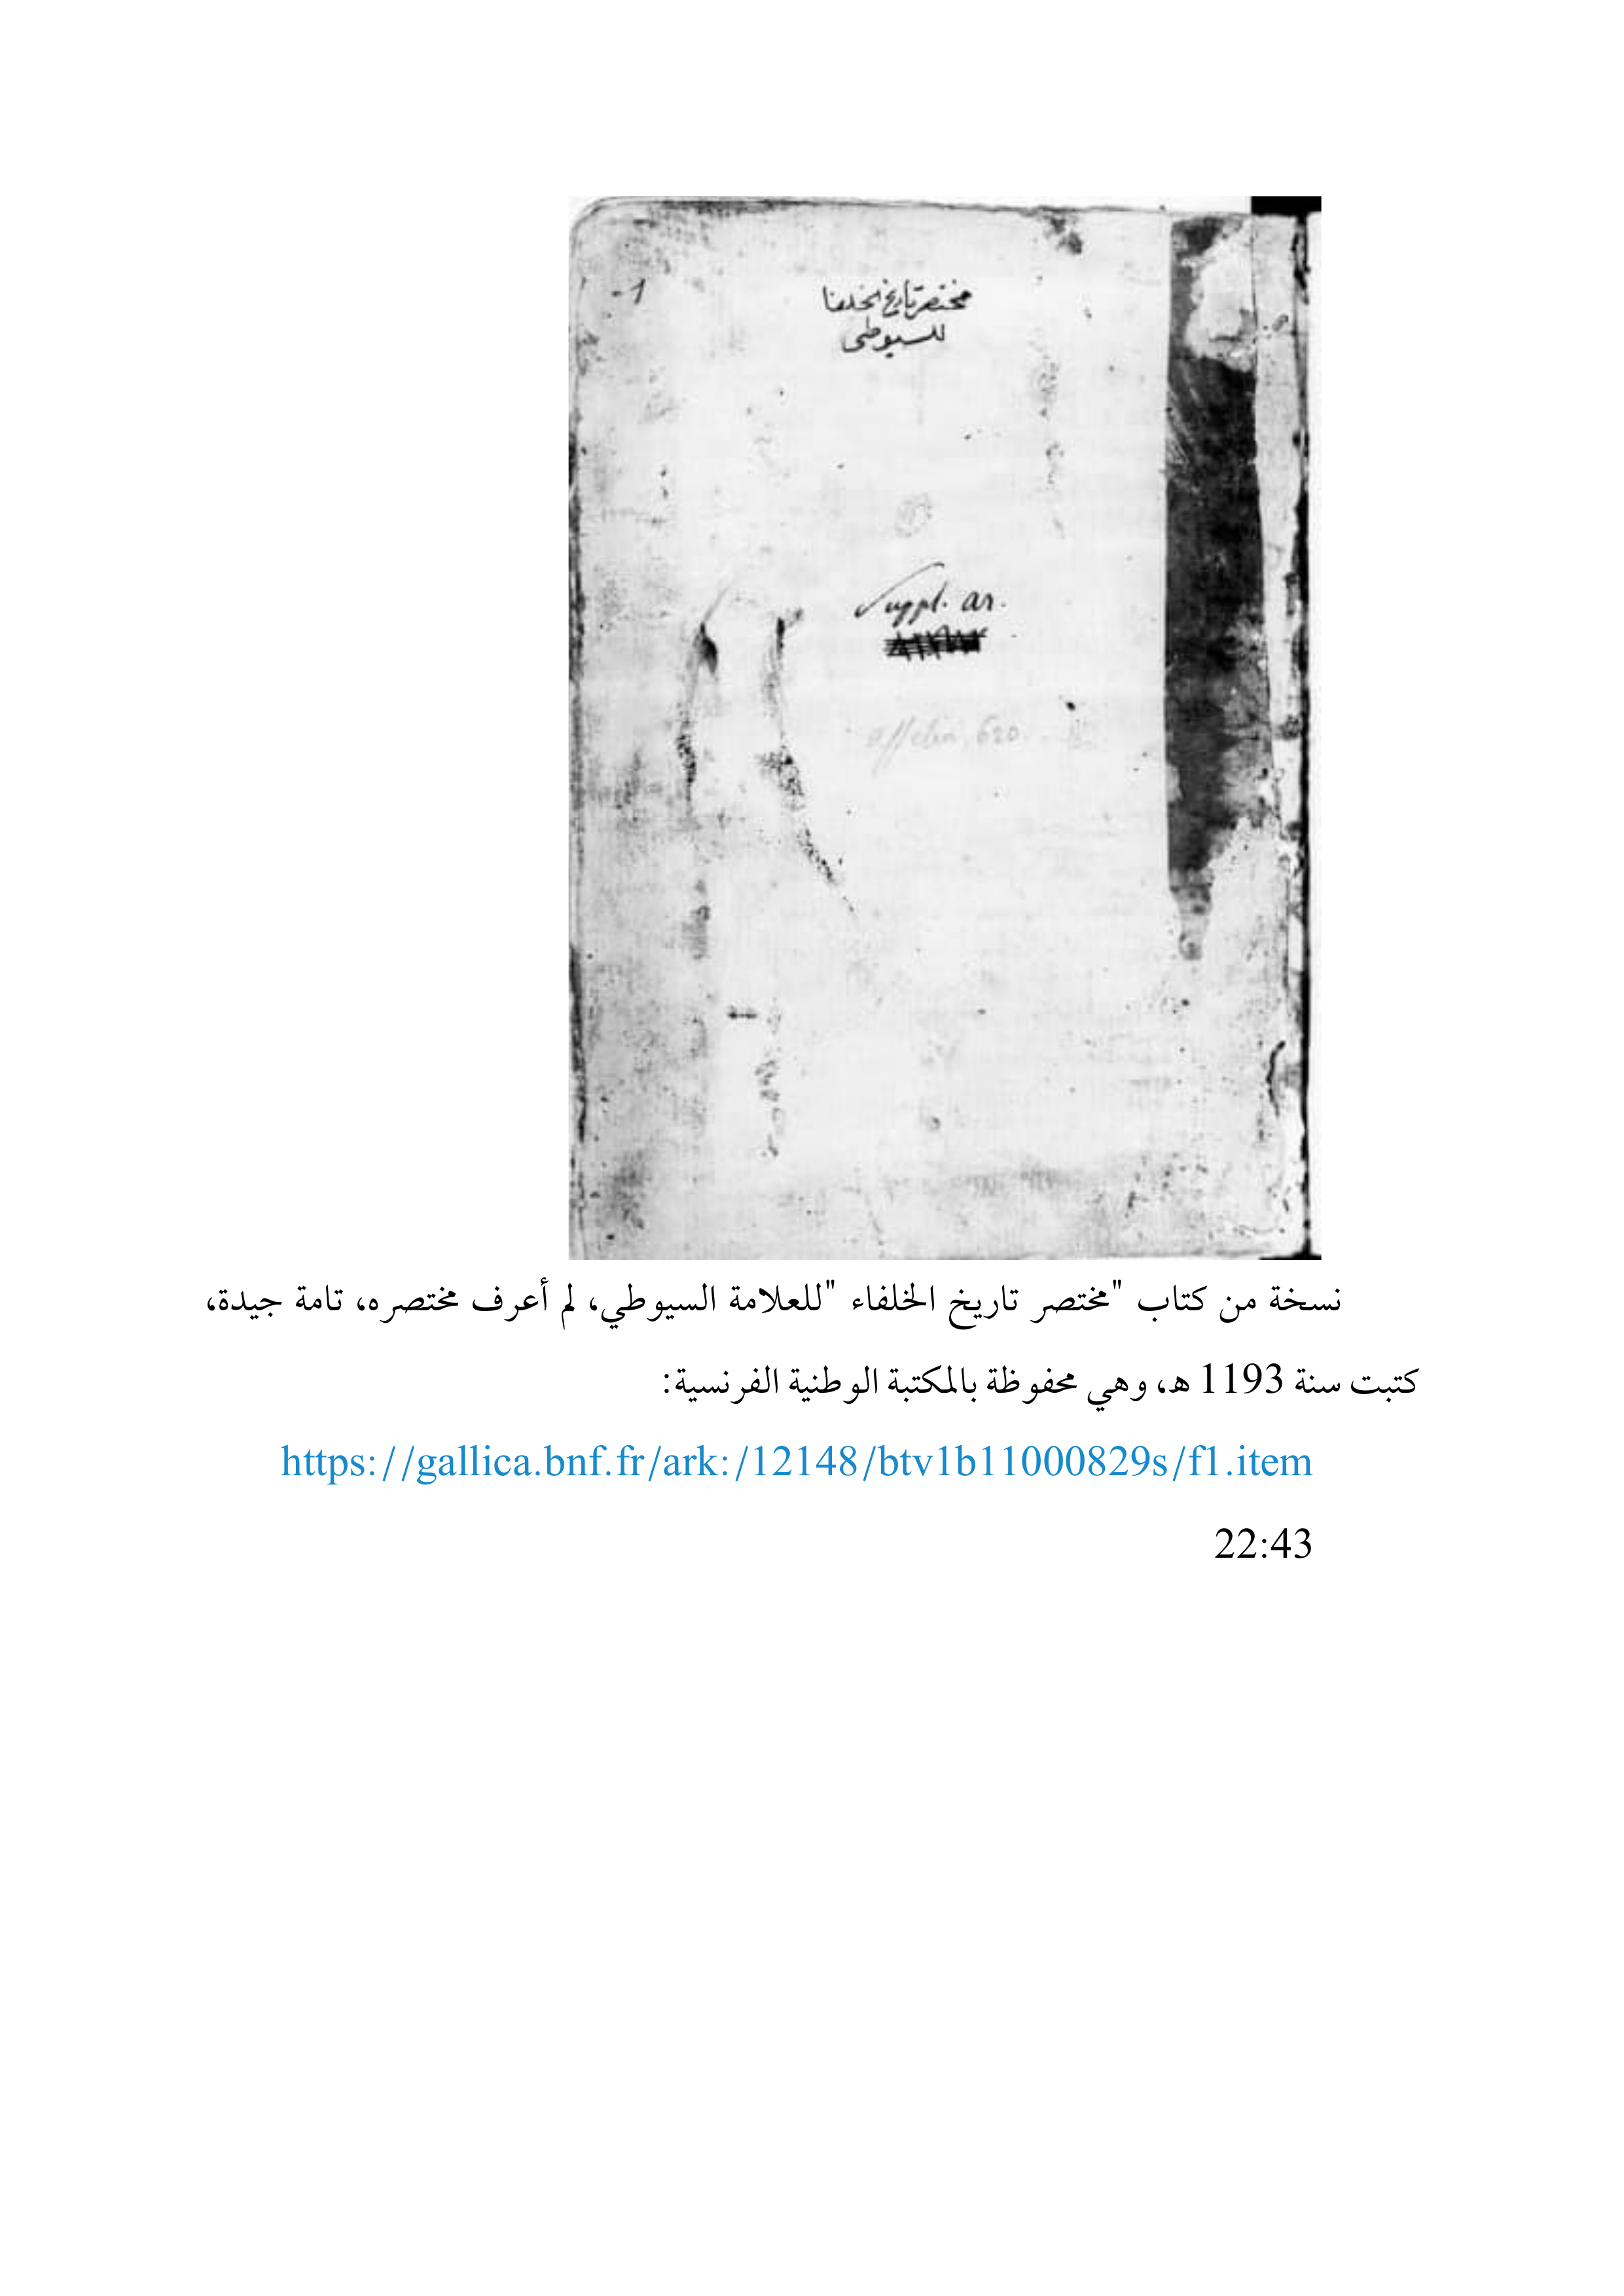 1
مختصر تاريخ الخلفا
للسيوطى
Suppl. ar.
620.
نسخة من كتاب "مختصر تاريخ الخلفاء "للعلامة السيوطي، لم أعرف مختصره، تامة جيدة،
كتبت سنة 1193 ه، وهي محفوظة بالمكتبة الوطنية الفرنسية:
https://gallica.bnf.fr/ark:/12148/btv1b11000829s/f1.item
22:43